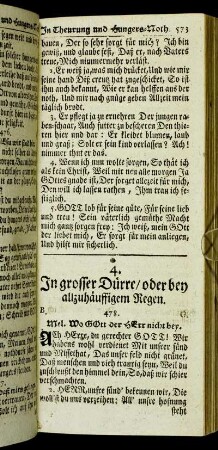 In Theurung und Hungers-Noth. 573
baues, Der so sehr sorgt für mich? Ich bin
gewiß, und glaube fest, Daß er, nach Vaters
treue, Mich nimmermehr verläßt.
2. Er weiß ja, was mich drücket, Und wie mir
seine hand Diß creutz hat zugeschicket, Es ist
ihm auch bekannt, Wie er kan helffen aus der
noth, Und mir nach gnüge geben Allzeit mein
täglich brodt.
3. Er pfleget ja zu ernehren Der jungen ra-
ben schaar, Auch futter zu bescheren Den thie-
ren hier und dar: Er kleidet blumen, laub
und graß: Solt er sein kind verlassen? Ach!
nimmer thut er das.
4. Wenn ich nun wolte sorgen, So thät ich
als kein Christ, Weil mit uns alle morgen Ja
GOttes gnade ist, Der sorget allezeit für mich,
Den will ich lassen rathen, Ihm trau ich ste-
tiglich.
5. GOTT lob für seine güte, Für seine lieb
und treu! Sein väterlich gemüthe Macht
mich gantz sorgen frey: Ich weiß, mein GOtt
der liebet mich, Er sorgt für mein anliegen,
Und hilft mir sicherlich.
4.
In grosser Dürre/ oder bey
allzuhäuffigem Regen.
478.
Mel. Wo GOtt der HErr nicht bey.
Ach HErr, du gerechter GOTT! Wir
habens wohl verdienet Mit unser sünd
und Missethat, Daß unser feld nicht grünet,
Daß menschen und vieh traurig seyn, Weil du
zuschleußt den himmel dein, So daß wir schier
verschmachten.
2. HERR, unsre sünd bekennen wir, Die
wollst du uns verzeihen; All' unser hofnung
steht